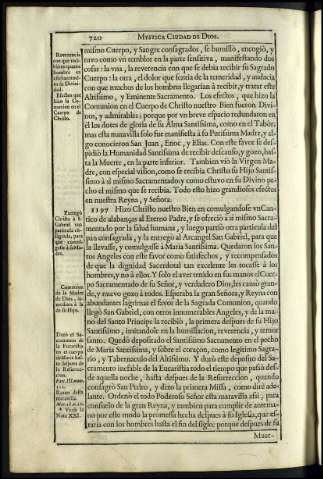 720 MYSTICA CIUDAD DE DIOS.
mismo Cuerpo, y Sangre consagrados, se humilló, encogió, y
tuvo como vn temblor en la parte sensitiva, manifestando dos
cosas: la vna, la reverencia con que se debia recibir su Sagrado
Cuerpo: la otra, el dolor que sentia de la temeridad, y audacia
con que muchos de los hombres llegarian à recibir, y tratar este
Altissimo, y Eminente Sacramento. Los efectos, que hizo la
Comunion en el Cuerpo de Christo nuestro Bien fueron Divinos,
y admirables; porque por vn breve espacio redundaron en
èl los dotes de gloria de su Alma Santissima, como en el Tabòr,
mas esta maravilla solo fue manifiesta à su Purissima Madre, y algo
conocieron San Juan, Enoc, y Elias. Con este favor se despidiò
la Humanidad Santissima de recibir descanso, y gozo, hasta
la Muerte, en la parte inferior. Tambien viò la Virgen Madre,
con especial vision, como se recibia Christo su Hijo Santissimo
à sí mismo Sacramentado y como estuvo en su Divino pecho
el mismo que se recibia. Todo esto hizo grandiosos efectos
en nuestra Reyna, y Señora.
1197 Hizo Christo nuestro Bien en comulgandose vn Cantico
de alabanças al Eterno Padre, y se ofreciò à sí mismo Sacramentado
por la salud humana, y luego partiò otra particula del
pan consagrado, y la entregò al Arcangel San Gabriel, para que
la llevasse, y comulgasse à Maria Santissima. Quedaron los Santos
Angeles con este favor como satisfechos, y recompensados
de que la dignidad Sacerdotal tan excelente les tocasse à los
hombres, y no à ellos. Y solo el aver tenido en sus manos el Cuerpo
Sacramentado de su Señor, y verdadero Dios, les causò grande,
y nuevo gozo à todos. Esperaba la gran Señora, y Reyna con
abundantes lagrimas el favor de la Sagrada Comunion, quando
llegò San Gabriel, con otros innumerables Angeles, y de la mano
del Santo Principe la recibiò, la primera despues de su Hijo
Santissimo, imitandole en la humillacion, reverencia, y temor
santo. Quedò depositado el Santissimo Sacramento en el pecho
de Maria Santissima, y sobre el coraçon, como legitimo Sagrario,
y Tabernaculo del Altissimo. Y durò este deposito del Sacramento
inefable de la Eucaristìa todo el tiempo que passò desde
aquella noche, hasta despues de la Resurreccion, quando
consagrò San Pedro, y dixo la primera Missa, como dirè adelante.
Ordenò el todo Poderoso Señor esta maravilla assi, para
consuelo de la gran Reyna, y tambien para cumplir de antemano
por este modo la promessa hecha despues à su Iglesia, que estaria
con los hombres hasta el fin del siglo; porque despues de su
Muer-